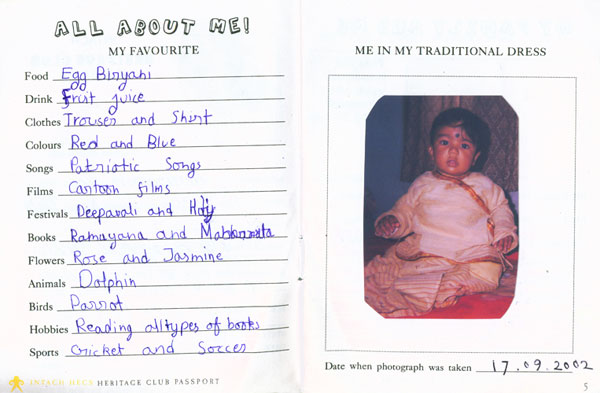 ALL ABOUT ME!
MY FAVOURITE
Food Egg Biryani
Drink Fruit juice
Clothes Trouser and Shirt
Colours Red and Blue
Songs Patriotic Songs
Films Cartoon films
Festivals Deepavali and
Books Ramayana and
Flowers Rose and Jasmine
Animals Dolphin
Birds Parrot
Hobbies Reading all types of books
Sports Cricket and Soccer
INTACH HECS HERITAGE CLUB PASSPORT
ME IN MY TRADITIONAL DRESS
Date when photograph was taken 17.09.2002
5